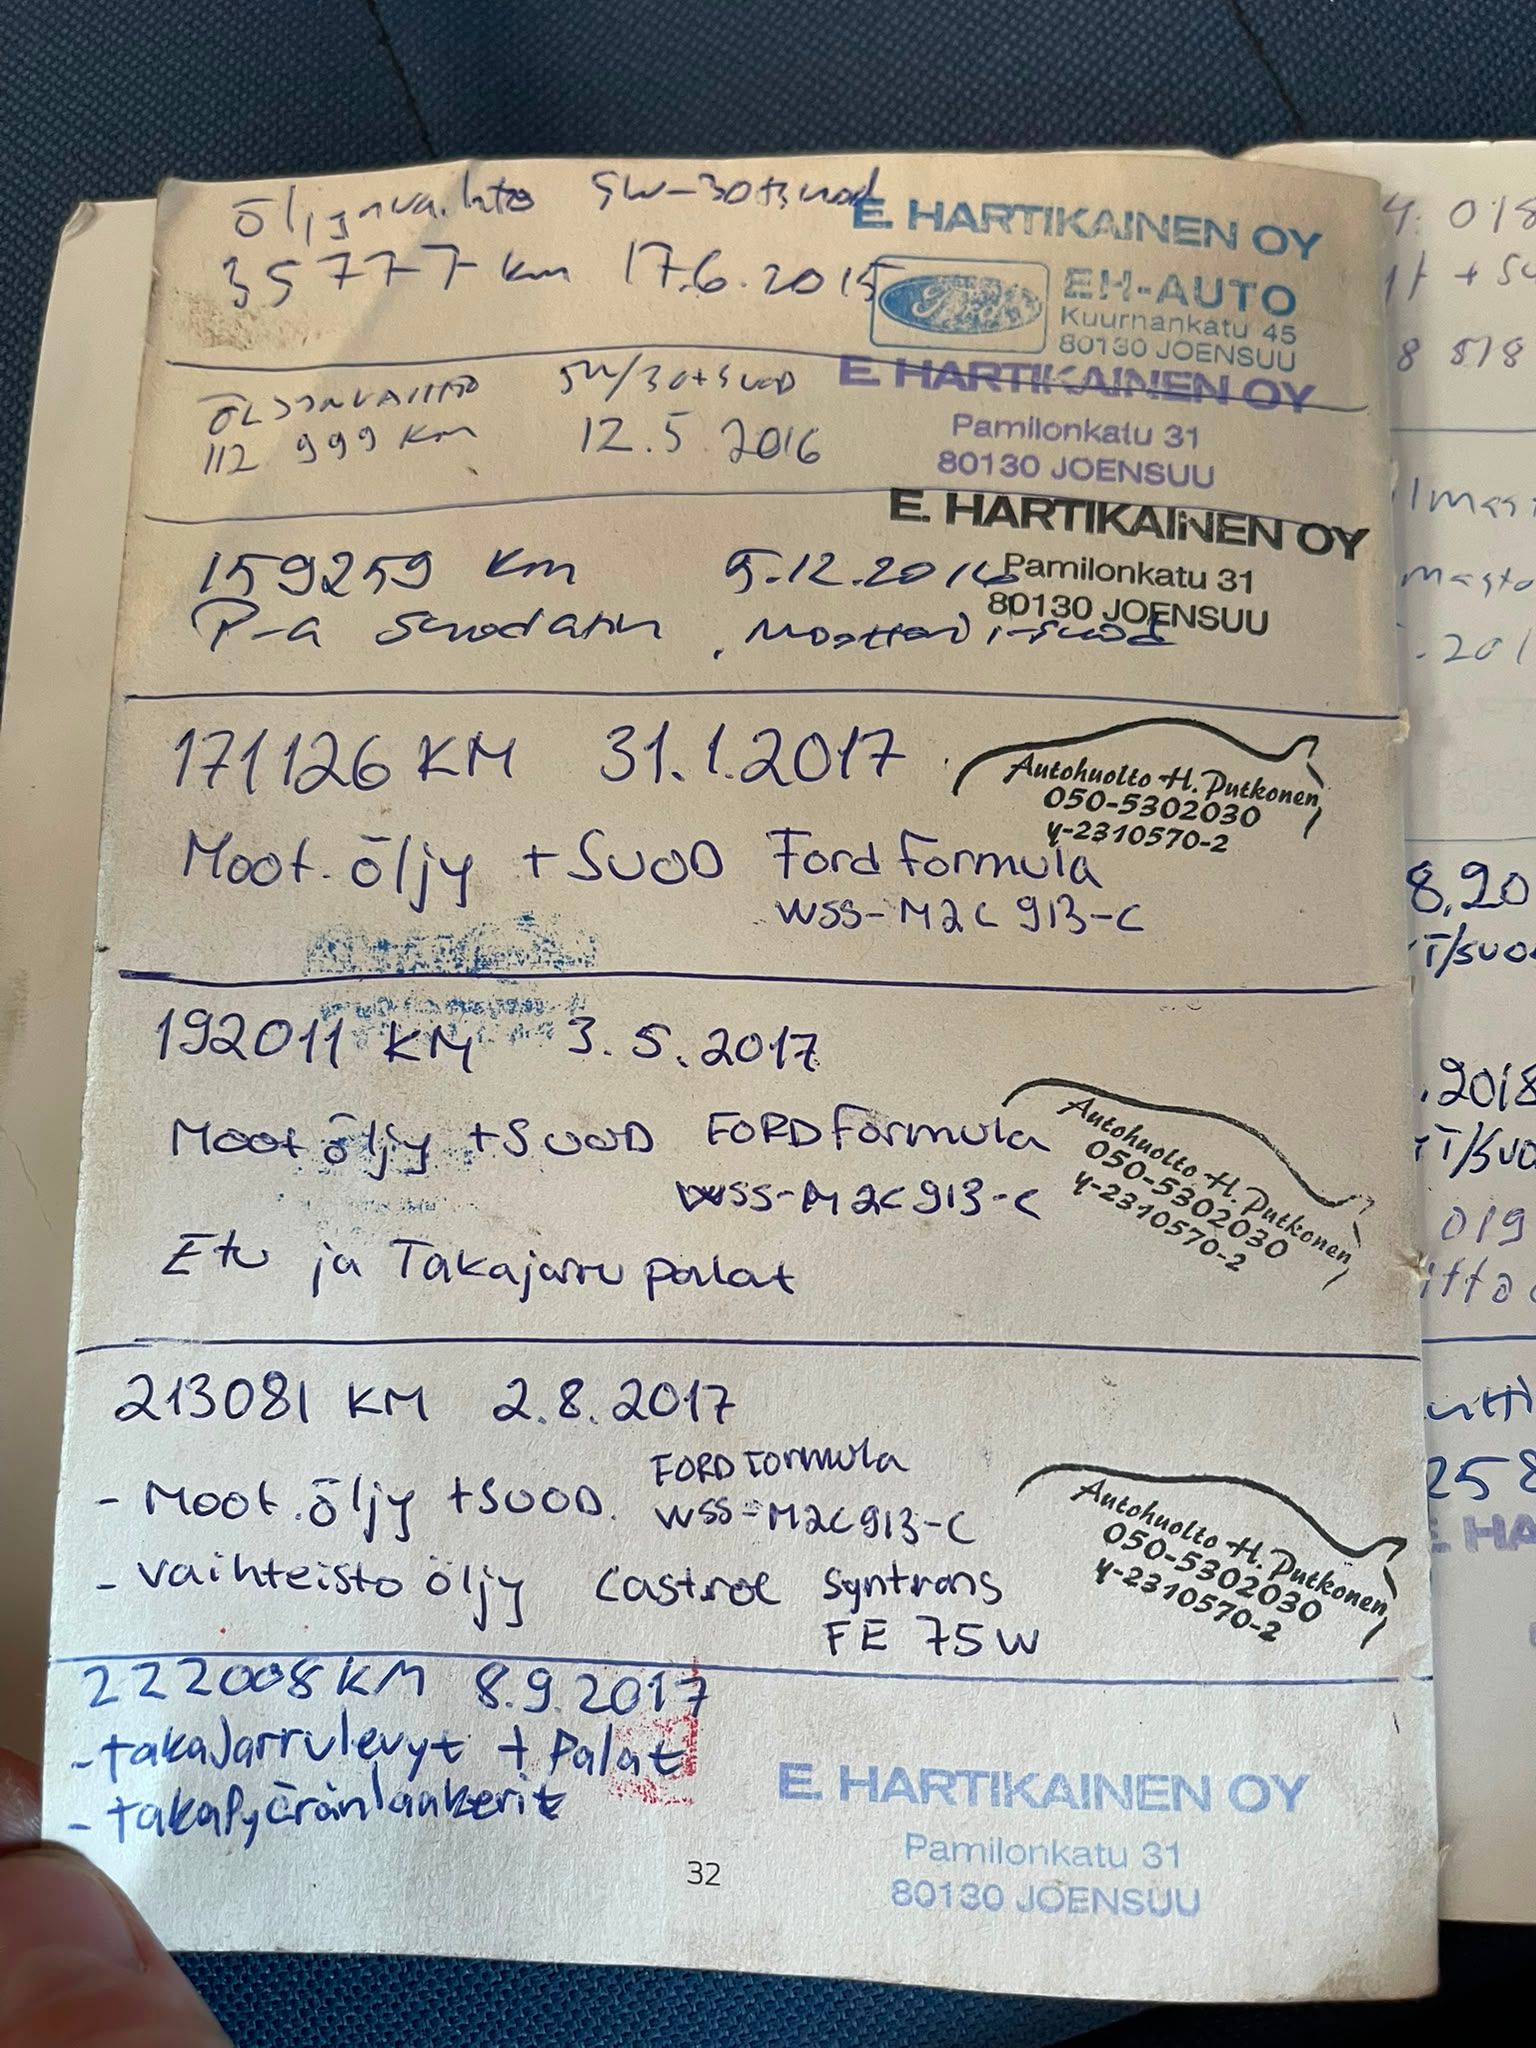 Öljynvaihto 5W-30+suod
35777 km 17.6.2015
E. HARTIKAINEN OY
Ford
EH-AUTO
Kuurnankatu 45
80130 JOENSUU
ÖLJYNVAIHTO 5W/30+SUOD
112 999 km 12.5.2016
E. HARTIKAINEN OY
Pamilonkatu 31
80130 JOENSUU
159259 km 5.12.2016
P-a suodatin, Moottoriö+suod
E. HARTIKAINEN OY
Pamilonkatu 31
80130 JOENSUU
171126 KM 31.1.2017
Moot. öljy + SUOD Ford Formula
WSS-M2C 913-C
Autohuolto H. Putkonen
050-5302030
y-2310570-2
192011 KM 3.5.2017
Moot öljy +SUOD FORD Formula
WSS-M2C913-C
Etu ja Takajarru palat
Autohuolto H. Putkonen
050-5302030
y-2310570-2
213081 KM 2.8.2017
- Moot. öljy +SUOD. FORD Formula
WSS-M2C913-C
- vaihteisto öljy Castrol Syntrans
FE 75W
Autohuolto H. Putkonen
050-5302030
y-2310570-2
222008 KM 8.9.2017
- takaJarrulevyt + Palat
- takaPyöränlaakerit
E. HARTIKAINEN OY
Pamilonkatu 31
80130 JOENSUU
32
8.20
.2018
019
258